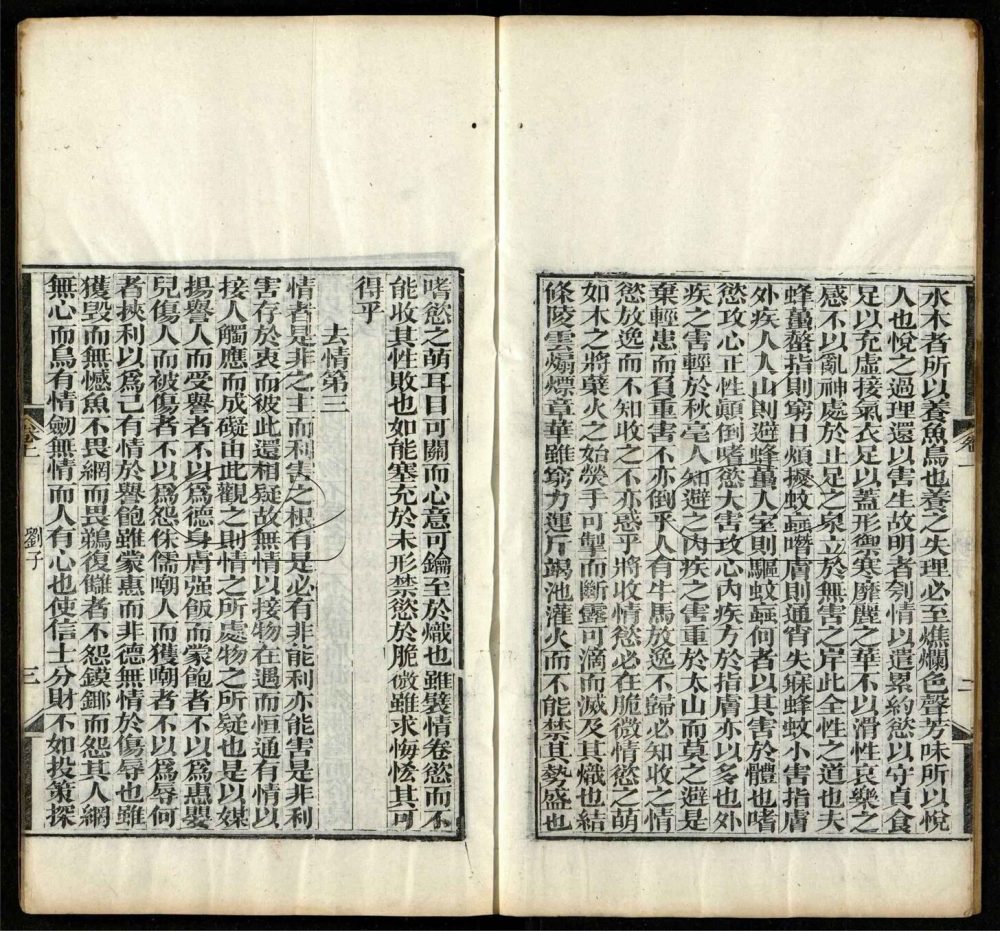 水木者所以養魚鳥也養之失理必至燋爛色聲芳味所以悅
人也悅之過理還以害生故明者刳情以遣累約慾以守貞食
足以充虛接氣衣足以蓋形禦寒靡麗之華不以滑性哀樂之
感不以亂神處於止足之泉立於無害之岸此全性之道也夫
蜂蠆螫指則窮日煩擾蚊蝱噆膚則通宵失寐蜂蚊小害指膚
外疾人入山則避蜂蠆入室則驅蚊蝱何者以其害於體也嗜
慾攻心正性顚倒嗜慾大害攻心內疾方於指膚亦以多也外
疾之害輕於秋毫人知避之內疾之害重於太山而莫之避是
棄輕患而負重害不亦倒乎人有牛馬放逸不歸必知收之情
慾放逸而不知收之不亦惑乎將收情慾必在脆微情慾之萌
如木之將蘖火之始熒手可掣而斷露可滴而滅及其熾也結
條陵雲煽熛章華雖窮力運斤竭池灌火而不能禁其勢盛也
卷上
二
嗜慾之萌耳目可關而心意可鑰至於熾也雖襞情卷慾而不
能收其性敗也如能塞充於未形禁慾於脆微雖求悔悋其可
得乎
去情第三
情者是非之主而利害之根有是必有非能利亦能害是非利
害存於衷而彼此還相疑故無情以接物在遇而恒通有情以
接人觸應而成礙由此觀之則情之所處物之所疑也是以媒
揚譽人而受譽者不以爲德身膚强飯而蒙飽者不以爲惠嬰
兒傷人而被傷者不以爲怨侏儒嘲人而獲嘲者不以爲辱何
者挾利以爲己有情於譽飽雖蒙惠而非德無情於傷辱也雖
獲毀而無憾魚不畏網而畏鵜復讎者不怨鏌鎁而怨其人網
無心而鳥有情劒無情而人有心也使信士分財不如投策探
卷上
劉子
三